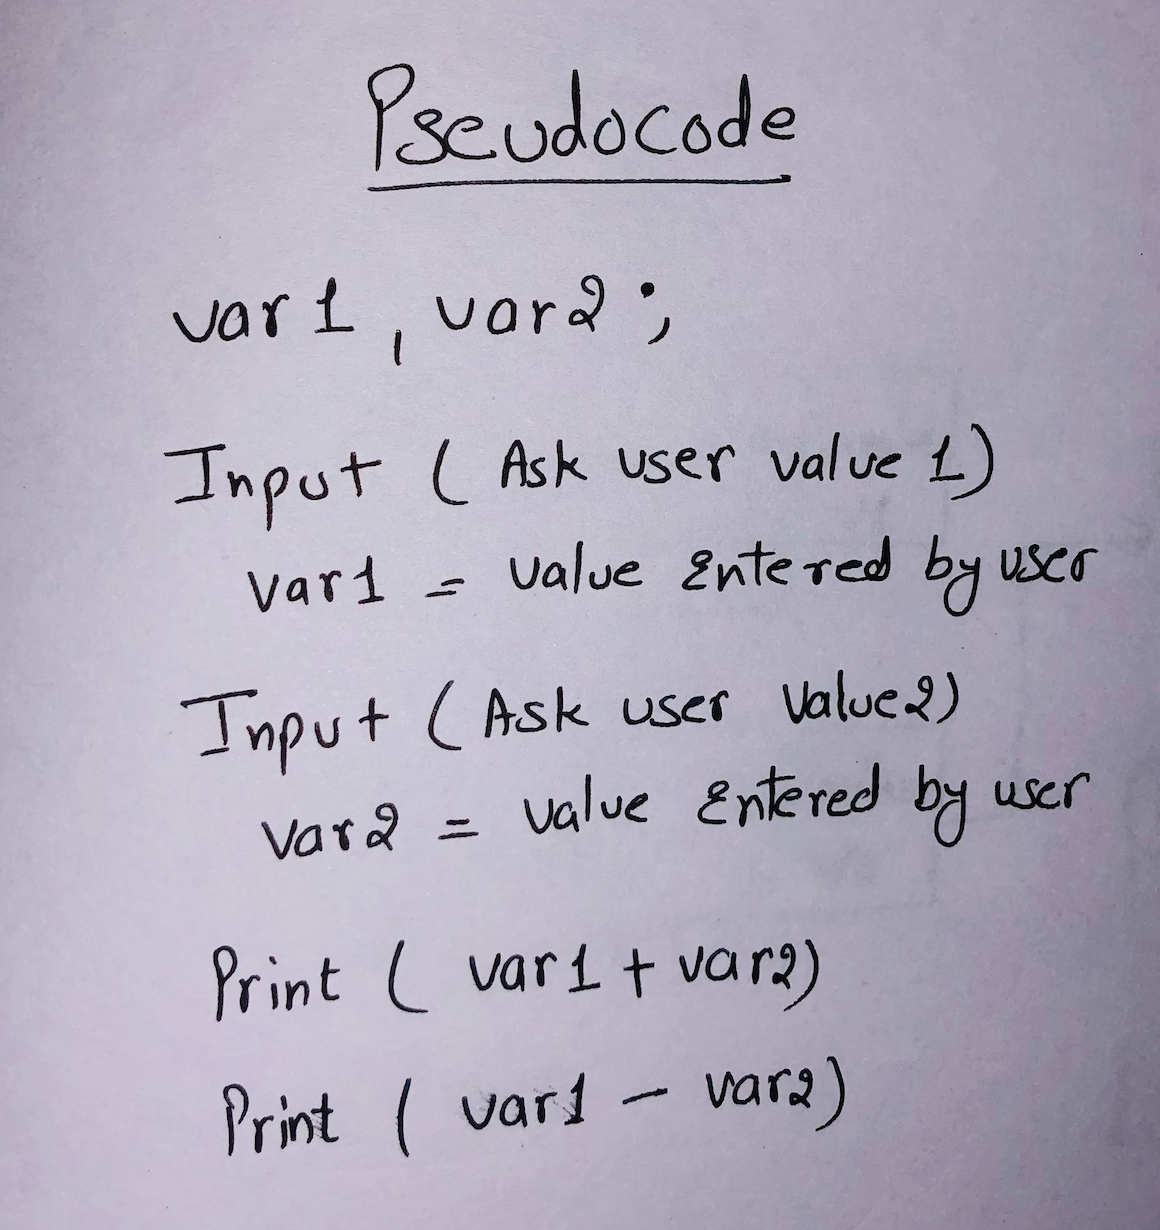 Pseudocode
var1, var2;
Input (Ask user value 1)
var1 = value Entered by user
Input (Ask user Value2)
var2 = value Entered by user
Print (var1 + var2)
Print (var1 - var2)